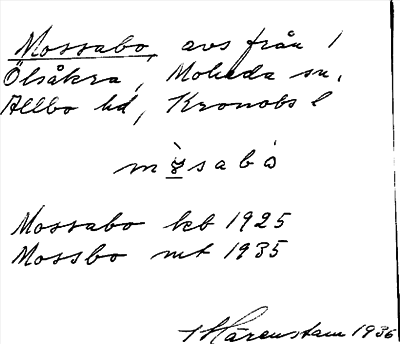 Mossabo, avs från 1
Ölsåkra, Moheda sn,
Allbo hd, Kronobs l
Mossabo kb 1925
Mossbo mt 1935
Hårenstam 1936